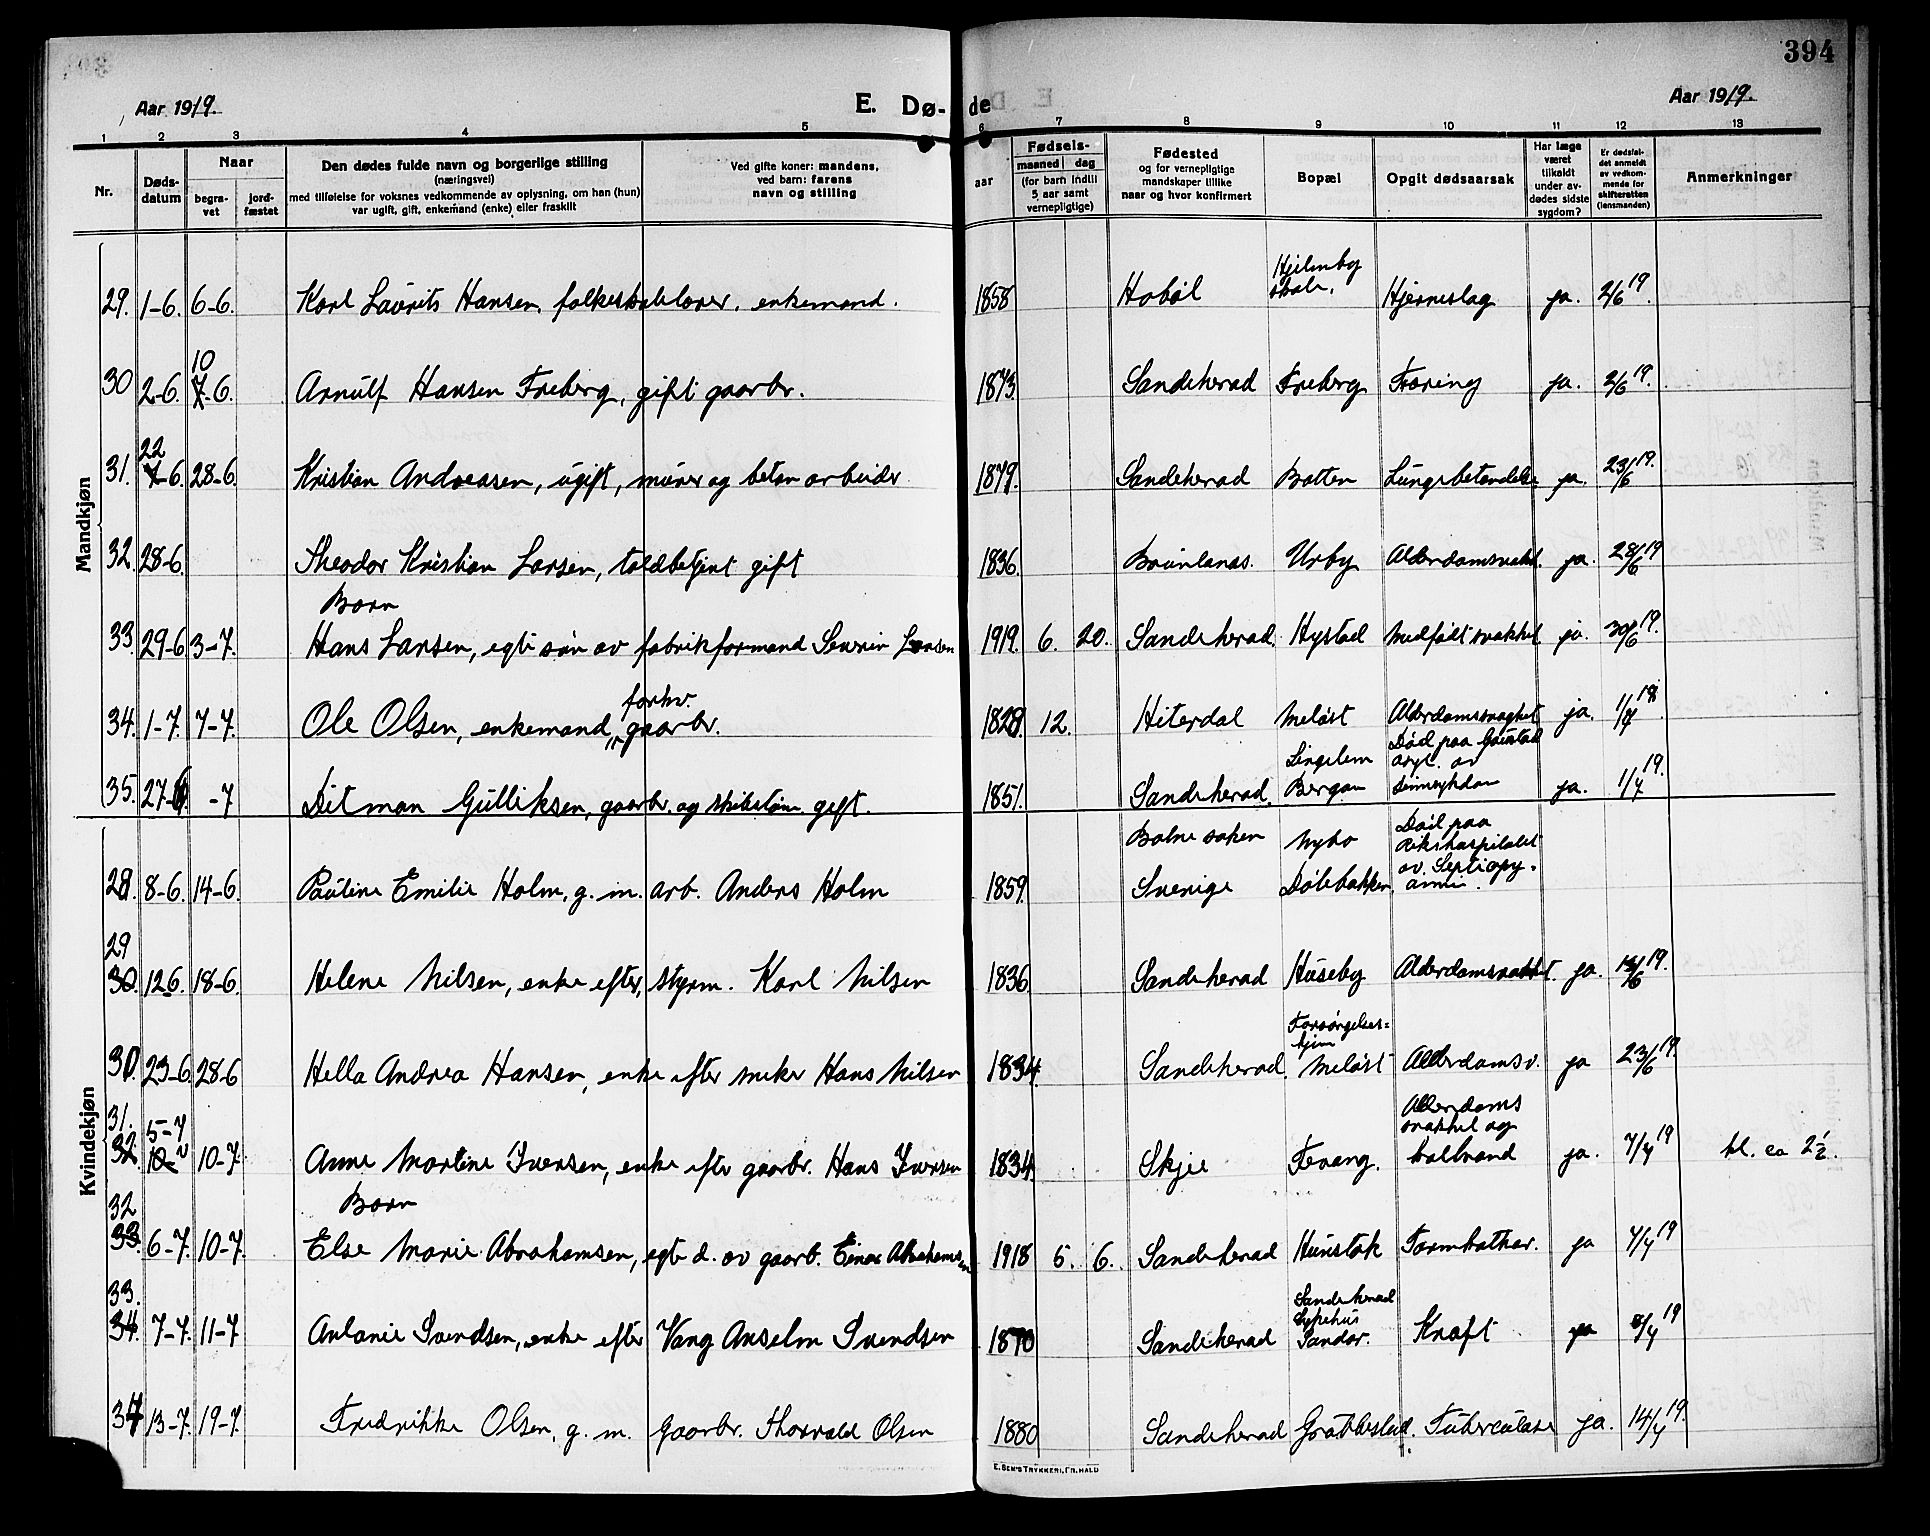 394
Aar 1919.
E. Dø-
de
Aar 1919.
1 2 3 4 5 6 7 8 9 10 11 12 13
Nr.
Døds-
datum
Naar
begra-
vet
jord-
fæstet
Den dødes fulde navn og borgerlige stilling
(næringsvei)
med tilføielse for voksnes vedkommende av oplysning, om han (hun)
var ugift, gift, enkemand (enke) eller fraskilt
Ved gifte koner: mandens,
ved barn: farens
navn og stilling
aar
Fødsels-
maaned dag
(for barn indtil
5 aar samt
vernepligtige)
Fødested
og for vernepligtige
mandskaper tillike
naar og hvor konfirmert
Bopæl
Opgit dødsaarsak
Har læge
været
tilkaldt
under av-
dødes sidste
sygdom?
Er dødsfal-
det anmeldt
av vedkom-
mende for
skifteretten
(lensmanden)
Anmerkninger
Mandkjøn
29. 1-6. 6-6. Karl Laurits Hansen, folkeskolelærer, enkemand. 1858 Hobøl Hjelmby skole, Hjerneslag ja. 2/6 19.
30 2-6. 10 7-6. Arnulf Hansen Freberg, gift gaarbr. 1873. Sandeherad Freberg Tæring ja. 2/6 19.
31. 22 7-6. 28-6. Kristian Andreasen, ugift, murer og beton arbeider 1879. Sandeherad Botten Lungebetændelse ja. 23/6 19.
32. 28-6. Theodor Kristian Larsen, toldbetjent gift 1836. Brunlanes. Urby Alderdomssvakh. ja. 28/6 19
Barn
33. 29-6 3-7. Hans Larsen, egte søn av fabrikformand Severin Larsen 1919. 6. 20. Sandeherad. Hystad Medfødt svakhet ja. 30/6 19.
34. 1-7. 7-7. Ole Olsen, enkemand, forhv. gaarbr. 1828 12. Hiterdal Meløst Alderdomssvaghet ja. 1/7 19.
35. 27-6. -7 Ditman Gulliksen, gaarbr. og skibstøm. gift. 1851. Sandeherad. Lingelem Bergan Død paa Gaustad asyl. av sinnsykdom ja. 1/7 19.
Kvindekjøn
28. 8-6. 14-6. Pauline Emilie Holm, g. m. arb. Anders Holm 1859. Bolne soken Sverige Nybo Dølebakken Død paa Rikshospitalet av Septicopyæmi.
29 30. 12-6. 18-6. Helene Nilsen, enke efter styrm. Karl Nilsen 1836. Sandeherad Huseby Alderdomssvakhet. ja. 13/6 19.
30. 23-6. 28-6 Hella Andrea Hansen, enke efter smeker Hans Nilsen 1834. Sandeherad. Forsørgelseshjem Meløst Alderdomsv. ja 23/6 19.
31. 32. 5-7 10-7. Anne Martine Iversen, enke efter gaarbr. Hans Iversen 1834. Skjee Fevang. Alderdoms svakhet og koldbrand ja. 7/7 19 kl. ca 2½.
Barn
32 33. 6-7. 10-7. Else Marie Abrahamsen, egte d. av gaarb. Einar Abrahamsen 1918 5. 6. Sandeherad Hunstok Tarmkathar. ja 7/7 19
33. 34. 7-7. 11-7 Antonie Svendsen, enke efter Vang Anselm Svendsen 1870 Sandeherad Sandeherad Sykehus Sandar. Kræft ja 8/7 19
34 13-7. 19-7. Fredrikke Olsen, g. m. Gaarbr. Thorvald Olsen 1880 Sandeherad Grat­testad. Tuberculose ja. 14/7 19.
E. SEM'S TRYKKERI, FR.HALD